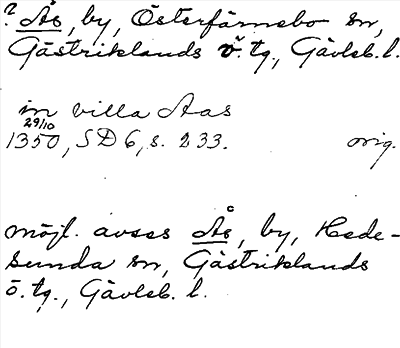 ? Ås, by, Österfärnebo sn,
Gästriklands v. tg., Gävleb. l.
in villa Aas
29/10
1350, SD 6, s. 233. orig.
möjl. avses Ås, by, Hede-
sunda sn, Gästriklands
ö. tg., Gävleb. l.